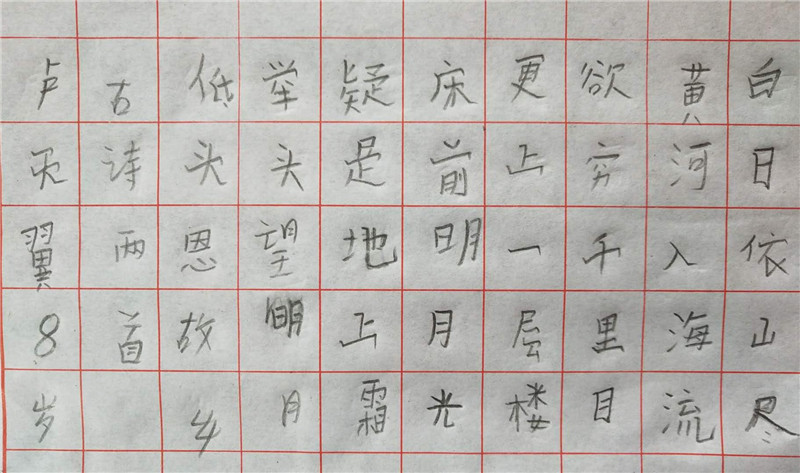 白日依山尽
黄河入海流
欲穷千里目
更上一层楼
床前明月光
疑是地上霜
举头望明月
低头恩故乡
古诗两首
卢翼8岁